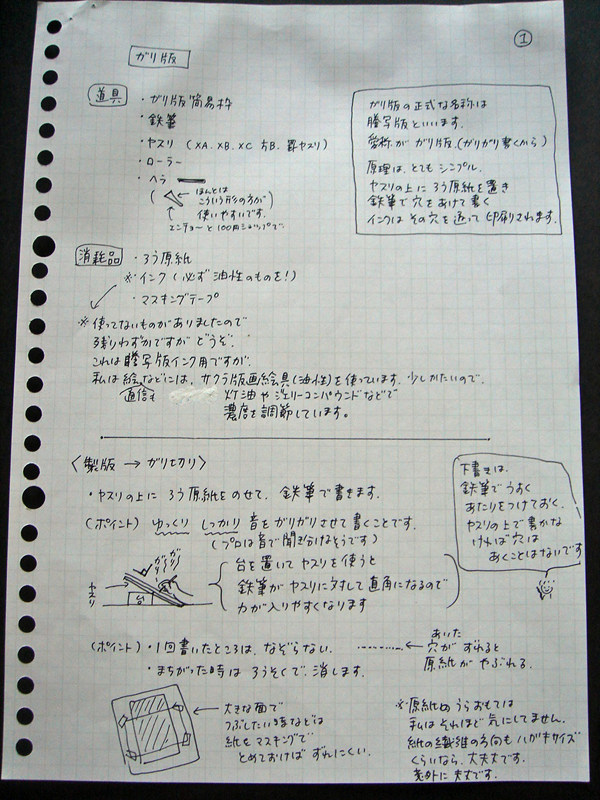 ①
ガリ版
道具
・ガリ版簡易枠
・鉄筆
・ヤスリ (XA. XB. XC 方B. 罫ヤスリ)
・ローラー
・ヘラ
( ← ほんとは
こういう形の方が
使いやすいです。
エンチョーと100円ショップで。
ガリ版の正式な名称は
謄写版といいます。
愛称がガリ版。(ガリガリ書くから)
原理は、とてもシンプル。
ヤスリの上にろう原紙を置き
鉄筆で穴をあけて書く
インクはその穴を通って印刷されます。
消耗品
・ろう原紙
※・インク (必ず油性のものを!)
・マスキングテープ
※使ってないものがありましたので
残りわずかですがどうぞ。
これは謄写版インク用ですが、
私は絵などには、サクラ版画絵具(油性)を使っています。少しかたいので、
通信も
灯油やジェリーコンパウンドなどで
濃度を調節しています。
〈製版 → ガリ切り〉
・ヤスリの上に ろう原紙をのせて、鉄筆で書きます。
(ポイント) ゆっくり しっかり 音をガリガリさせて書くことです。
(プロは音で聞き分けるそうです)
下書きは、
鉄筆でうすく
あたりをつけておく。
ヤスリの上で書かな
ければ穴は
あくことはないです
ガリガリ
ヤスリ
台
台を置いてヤスリを使うと
鉄筆がヤスリに対して直角になるので
力が入りやすくなります
(ポイント) ・1回書いたところは、なぞらない。
・まちがった時は ろうそくで、消します。
あいた
← 穴がずれると
原紙がやぶれる。
← 大きな面で
つぶしたい時などは
紙をマスキングで
とめておけば ずれにくい。
※原紙のうらおもては
私はそれほど気にしてません。
紙の繊維の方向もハガキサイズ
くらいなら、大丈夫です。
意外に丈夫です。